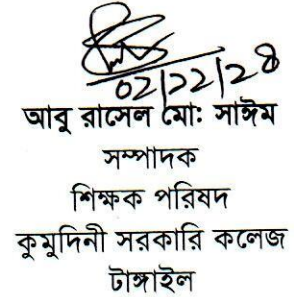 ০২/১২/২৪
আবু রাসেল মো: সাঈম
সম্পাদক
শিক্ষক পরিষদ
কুমুদিনী সরকারি কলেজ
টাঙ্গাইল